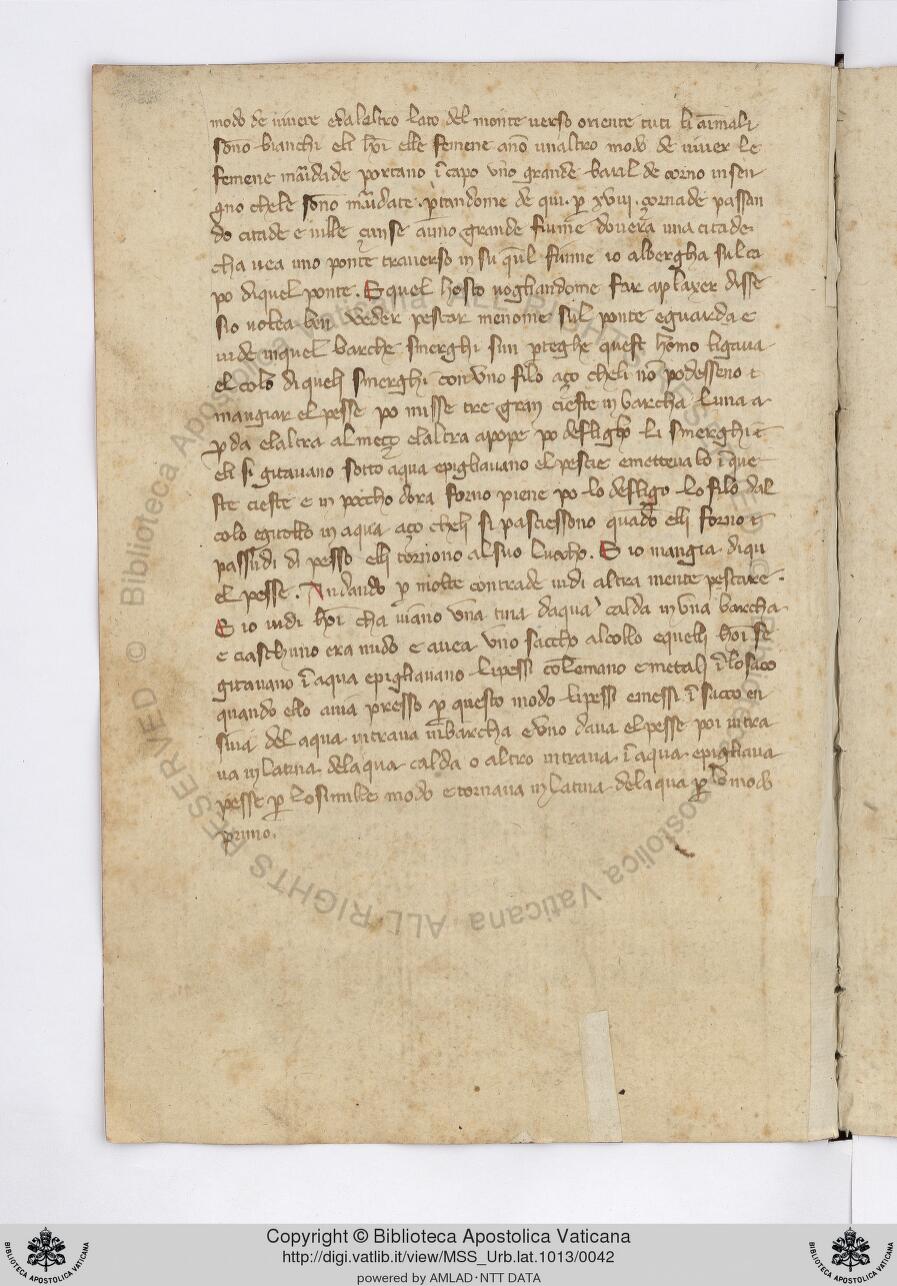 modo de uiuere edalaltro lato del monte uerso oriente tuti li anīmali
sono bianchi eli hōi elle femene ano unaltro modo de uiuer le
femene maīdade portano ī capo vno grande baril de corno in sen
gno chele sono maīdate . ptandome de qui . p xviij . çornade passan
do citade e uille çunse auno grande fiume doue era una citade .
cha uea uno ponte trauerso in su q̄l fiume io albergha sul ca
po di quel ponte . E quel hosto uogliandome far aplaxer disse
sio uolea ben ueder pescar menome sul ponte eguarda e
uide in quel barche smerghi sun perteghe quest homo ligaua
el colo di queli smerghi con vno filo aço cheli nō podesseno
mangiar el pesse po misse tre gran cieste in barcha luna a
p da elaltra al meço elaltra apope po desligho li smerghi
eli si gitauano sotto aqua epigliauano el pescie emetteualo ī que
ste cieste e in pocho dora forno piene po lo desligo lo filo dal
colo egitollo in aqua aço cheli si pasciessono quādo elli forno
passudi di pesso elli tornono al suo luocho . E io mangia di qu
el pesse . Andando p molte contrade uidi altra mente pescare .
E io uidi hōi cha uiano vna tina daqua calda in vna barcha
e ciaschuno era nudo e auea vno saccho alcollo equelli hōi se
gitauano ī aqua epigliauano li pessi cō le mano emetali ī lo saco
quando ello auia presso p questo modo li pessi emessi ī sacco en
siuia del aqua intraua in barcha e vno daua el pesse poi intra
ua in la tina dela qua calda o altro intraua ī aqua epigliaua
pesse p lo simille modo e tornaua in la tina dela qua p lo modo
primo .
Copyright © Biblioteca Apostolica Vaticana
http://digi.vatlib.it/view/MSS_Urb.lat.1013/0042
powered by AMLAD·NTT DATA
BIBLIOTECA APOSTOLICA VATICANA
BIBLIOTECA APOSTOLICA VATICANA
© Biblioteca Apostolica Vaticana ALL RIGHTS RESERVED